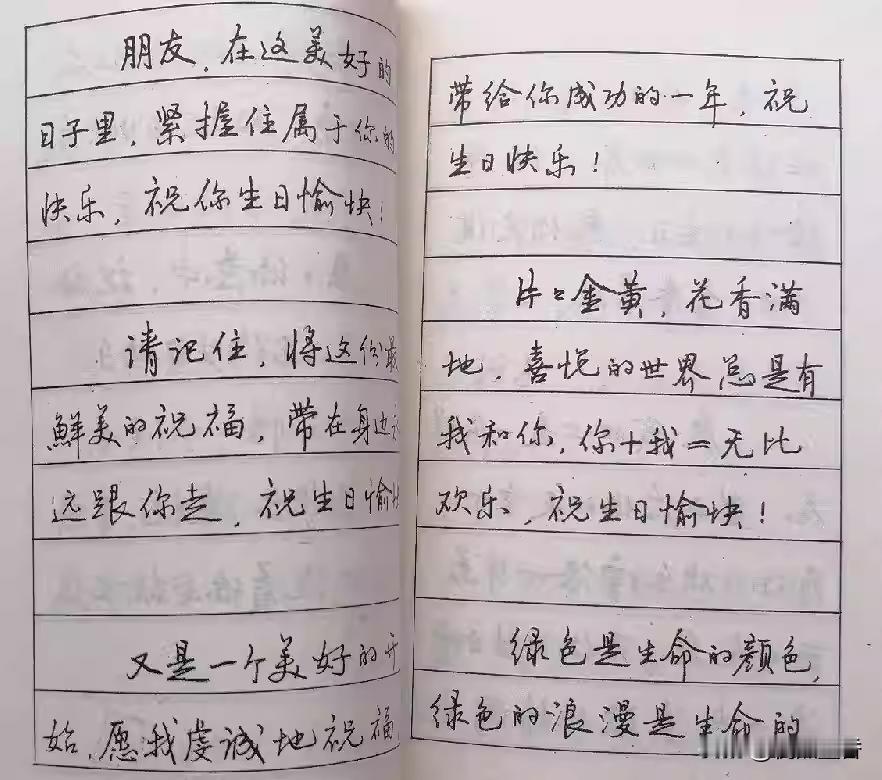 朋友，在这美好的
日子里，紧握住属于你的
快乐，祝你生日愉快！
请记住，将这份最
鲜美的祝福，带在身边永
远跟你走，祝生日愉快
又是一个美好的开
始，愿我虔诚地祝福，
带给你成功的一年，祝
生日快乐！
片々金黄，花香满
地，喜悦的世界总是有
我和你，你+我=无比
欢乐，祝生日愉快！
绿色是生命的颜色，
绿色的浪漫是生命的